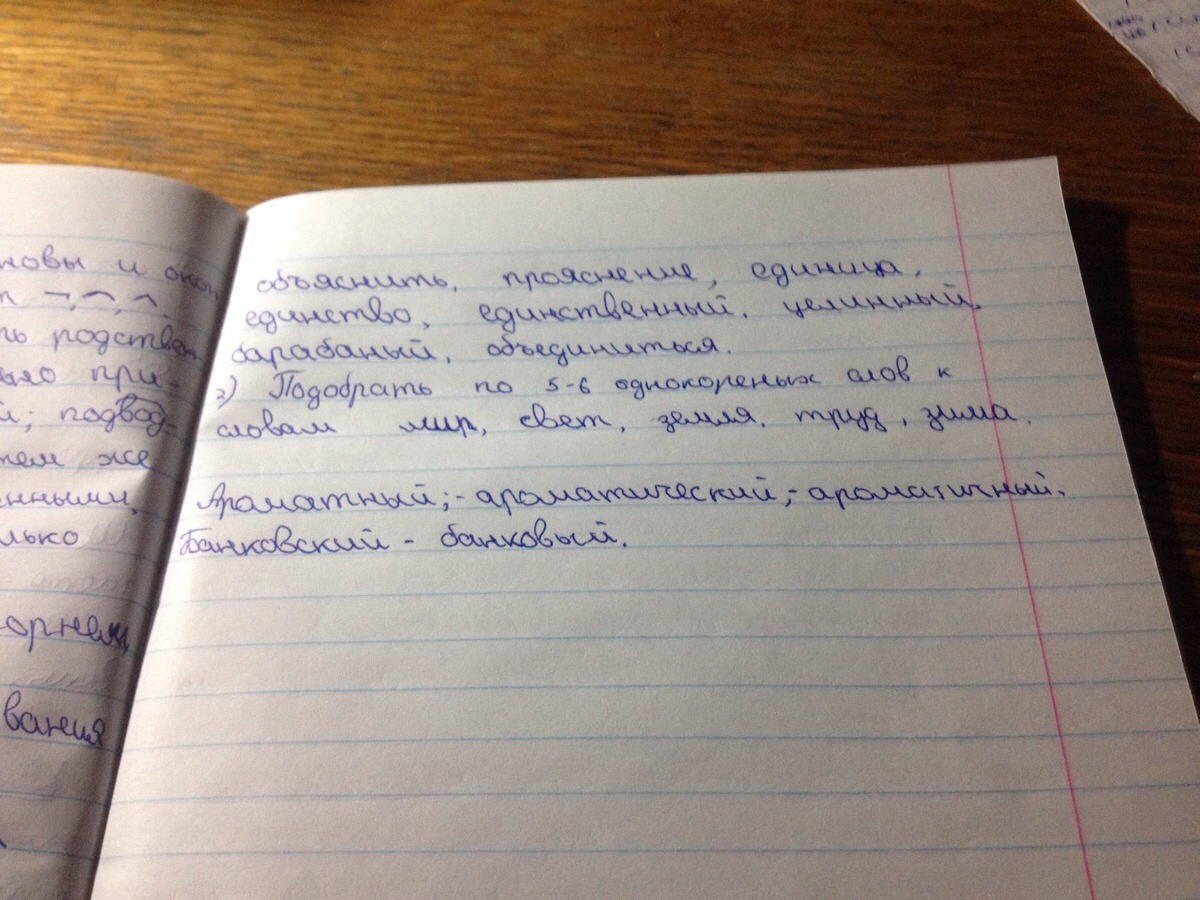 новы и окон
ть родствен
было при-
й; подвод-
тем же
енными,
лько
орнем,
вания
объяснить, прояснение, единица,
единство, единственный, целинный,
барабаный, объединиться.
2) Подобрать по 5-6 однокореных слов к
словам мир, свет, земля, труд, зима.
Ароматный; - ароматический; - ароматичный.
Банковский - банковый.